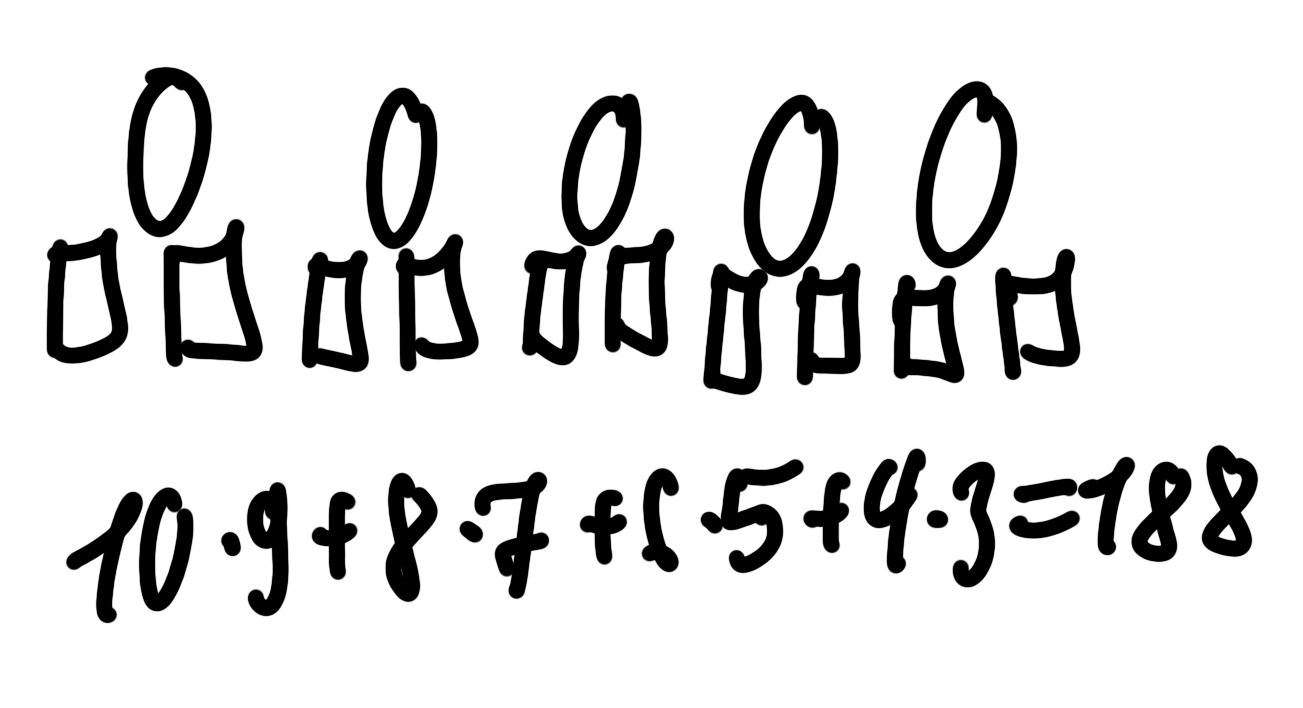 10·9+8·7+6·5+4·3=188